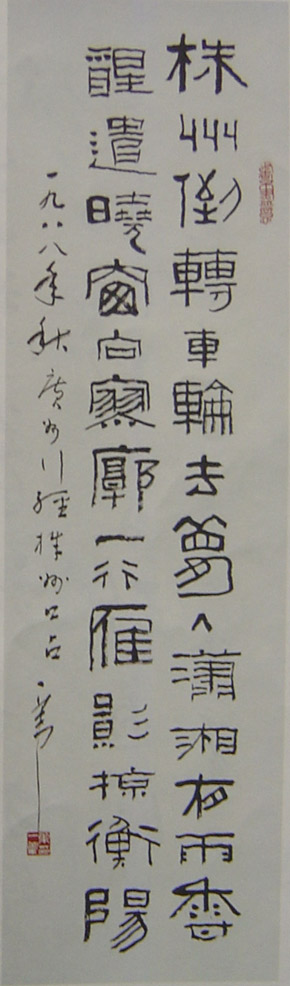 株州倒轉車輪去夢入瀟湘夜雨香
醒遣曉窗向寥廓一行雁影掠衡陽
一九八八年秋廣州行經株州口占